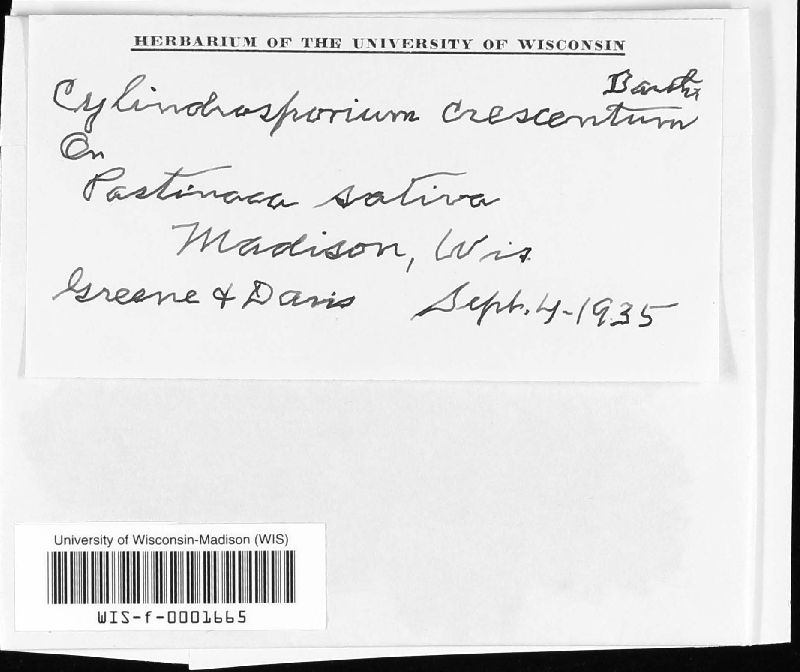 HERBARIUM OF THE UNIVERSITY OF WISCONSIN
Barth.
Cylindrosporium crescentum
On
Pastinaca sativa
Madison, Wis
Greene & Davis Sept. 4-1935
University of Wisconsin-Madison (WIS)
WIS-f-0001665